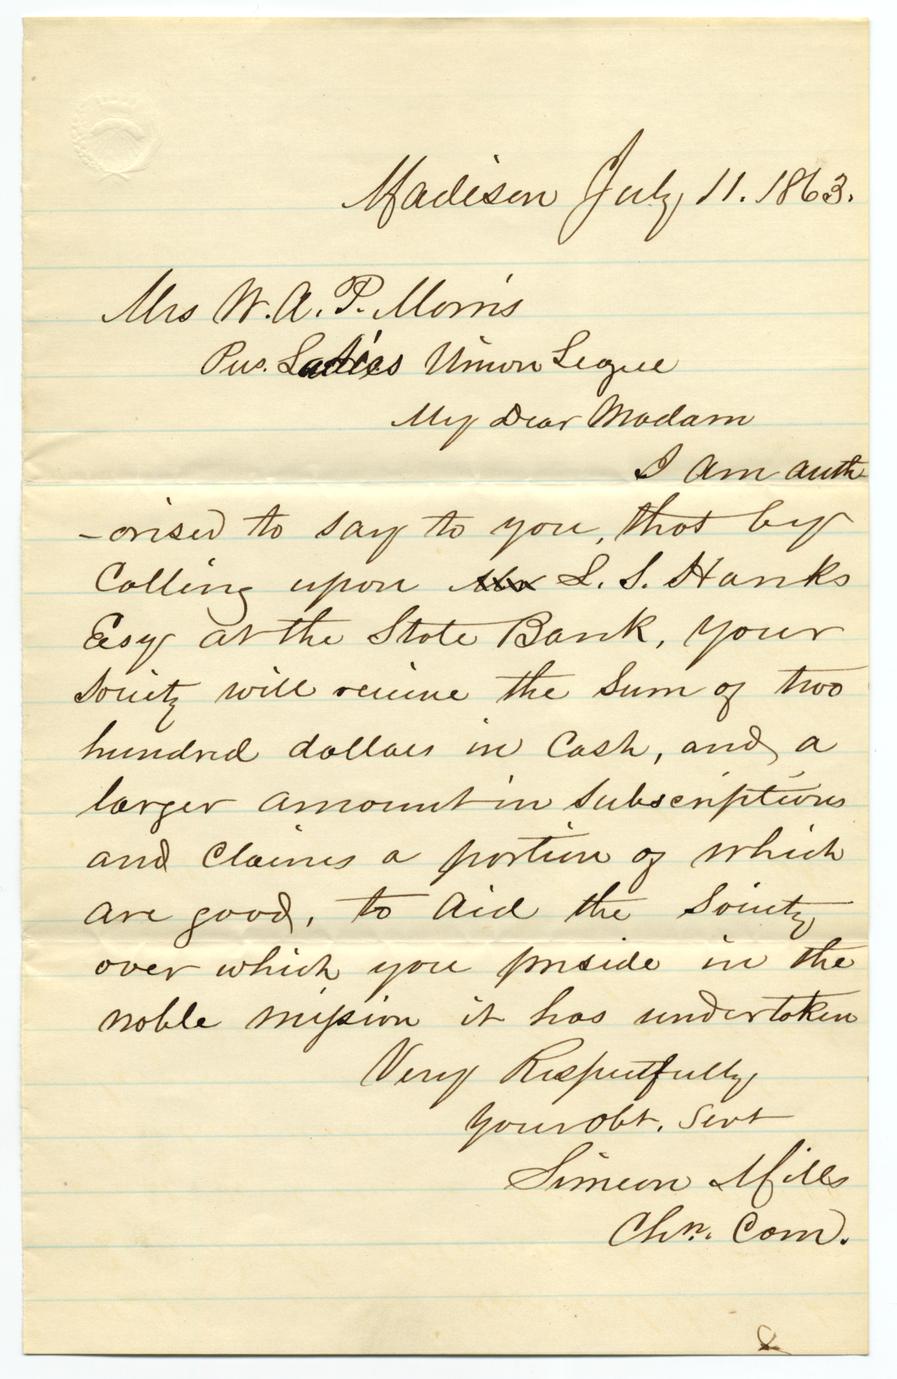 Madison July 11. 1863.
Mrs W. A. P. Morris
Pres. Ladies Union League
My Dear Madam
I am auth
-orised to say to you, that by
Calling upon L. S. Hanks
Esq at the State Bank, your
Society will recieve the Sum of two
hundred dollars in Cash, and a
larger amount in Subscriptions
and Claims a portion of which
are good, to Aid the Society
over which you preside in the
noble mission it has undertaken
Very Respectfully
your obt. Servt
Simeon Mills
Chn. Com.